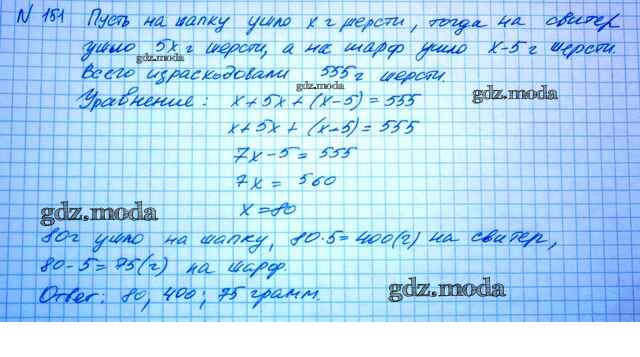 N 151 Пусть на шапку ушло x г шерсти, тогда на свитер
ушло 5x г шерсти, а на шарф ушло x-5 г шерсти.
gdz.moda
gdz.moda
Всего израсходовали 555 г шерсти.
gdz.moda
gdz.moda
Уравнение: x+5x+(x-5)=555
x+5x+(x-5)=555
7x-5=555
7x=560
x=80
gdz.moda
80г ушло на шапку, 80·5=400(г) на свитер,
80-5=75(г) на шарф.
Ответ: 80, 400; 75 грамм.
gdz.moda